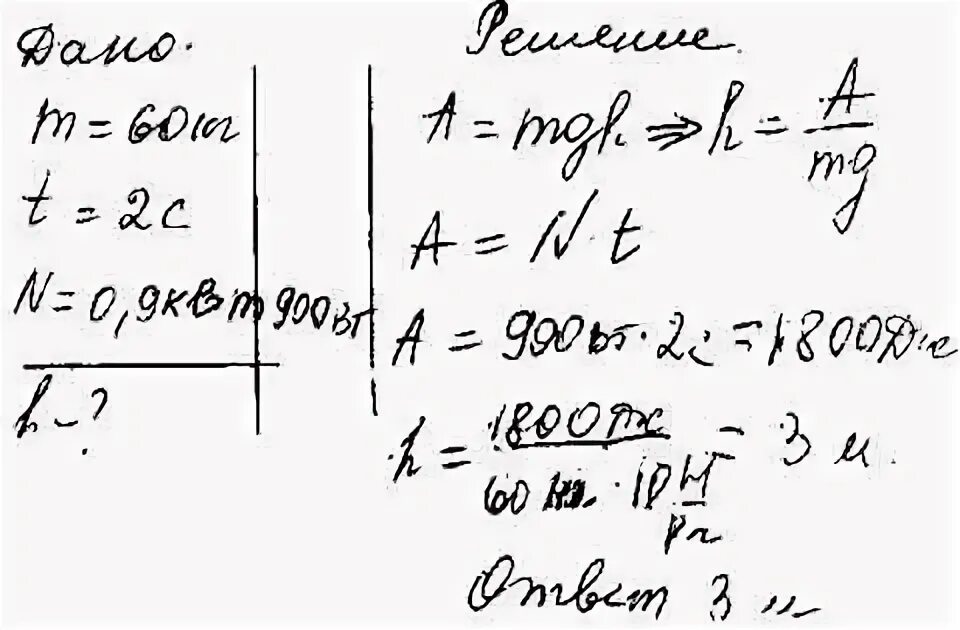 Дано.
m = 60 кг
t = 2 с
N = 0,9 кВт 900 Вт
h - ?
Решение.
A = mgh ⇒ h = A/mg
A = N t
A = 900 Вт · 2 с = 1800 Дж
h = 1800 Дж / 60 кг · 10 Н/кг = 3 м.
Ответ 3 м